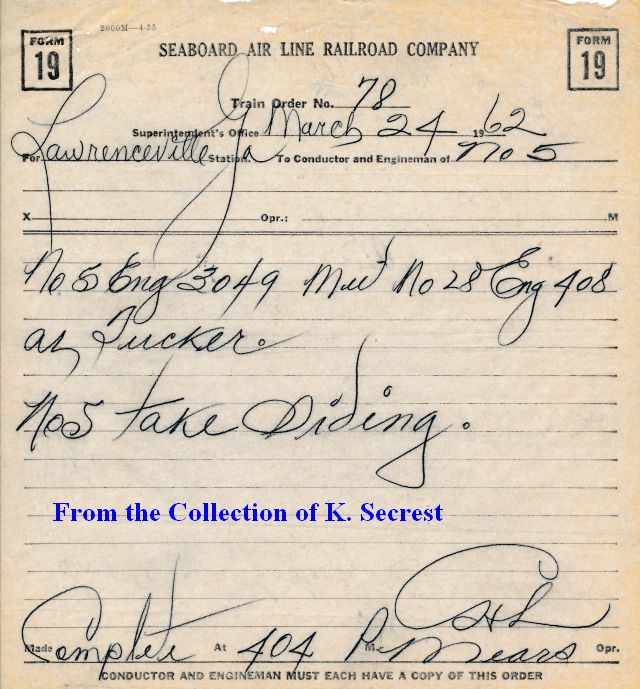 2000M—4-55
FORM 19
SEABOARD AIR LINE RAILROAD COMPANY
FORM 19
Train Order No. 78
Superintendent's Office March 24 1962
For Lawrenceville Ga Station. To Conductor and Engineman of No 5
X Opr.: M
No 5 Eng 3049 Meet No 28 Eng 408
at Tucker.
No 5 take Siding.
From the Collection of K. Secrest
Made Complete At 404 P M. Mears Opr.
CONDUCTOR AND ENGINEMAN MUST EACH HAVE A COPY OF THIS ORDER